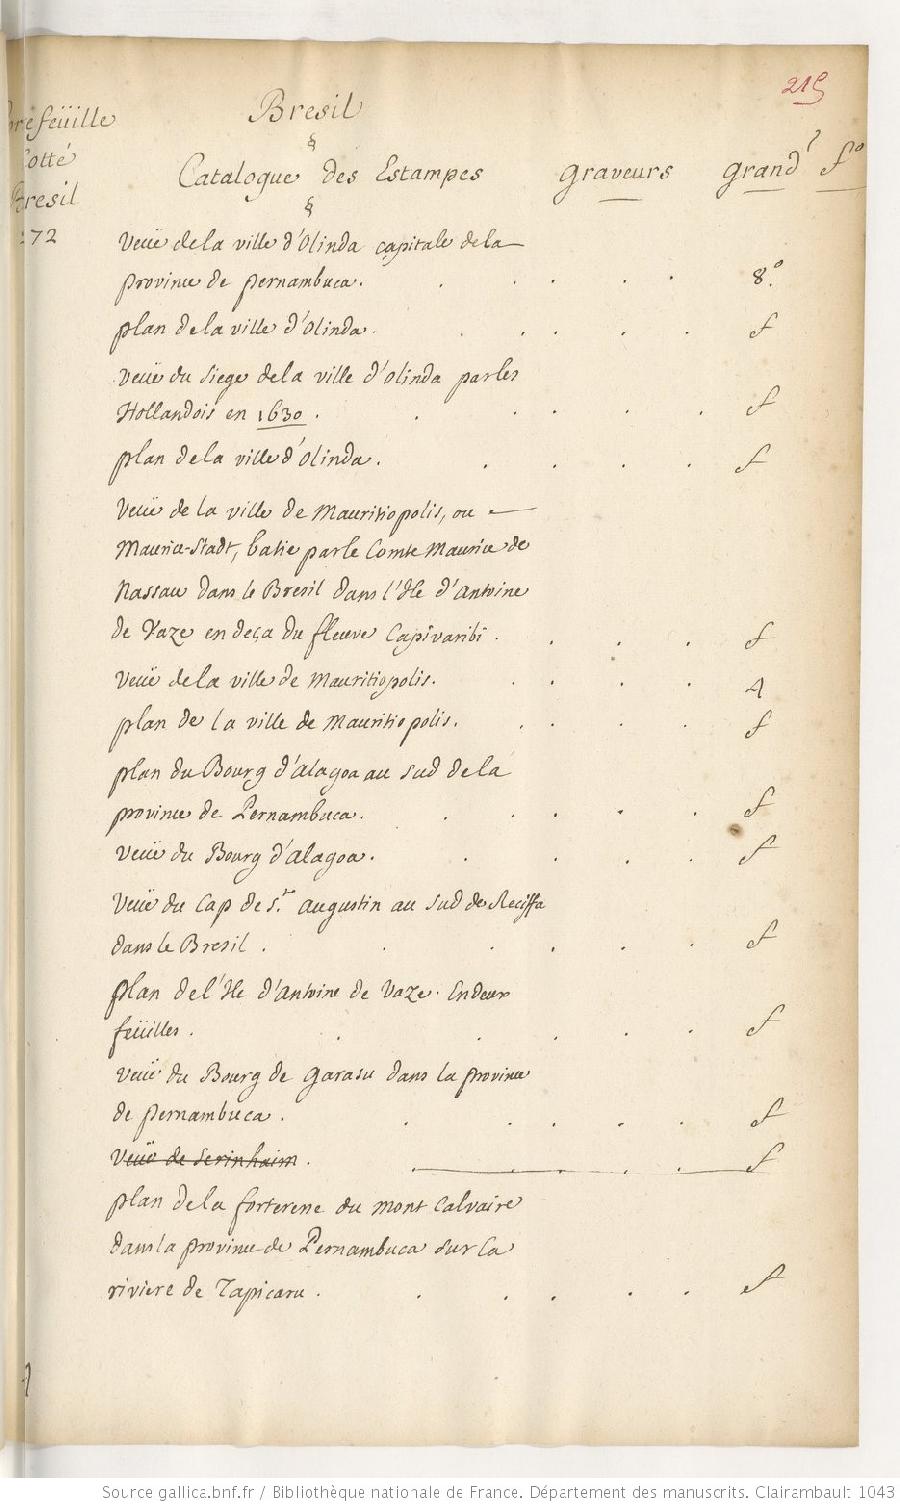 215
Bresil
§
refeüille
otté
resil
72
Catalogue des Estampes graveurs grand.r f.o
§
Veüe de la ville d'Olinda capitale de la
province de pernambuca. 8.o
plan de la ville d'Olinda. f
Veüe du siege de la ville d'olinda par les
Hollandois en 1630. f
plan de la ville d'Olinda. f
Veüe de la ville de Mauritiopolis, ou
Maurice-Stadt, batie par le Comte Maurice de
Nassau dans le Bresil dans l'Ile d'Antoine
de Vaze en deça du fleuve Capivaribi. f
Veüe de la ville de Mauritiopolis. 4
plan de la ville de Mauritiopolis. f
plan du Bourg d'Alagoa au sud de la
province de Pernambuca. f
Veüe du Bourg d'alagoa. f
Veüe du Cap de S.t augustin au sud de Reciffa
dans le Bresil. f
plan de l'Ile d'Antoine de Vaze. En deux
feüilles. f
Veüe du Bourg de Garasu dans la province
de pernambuca. f
Veüe de Serinhaim. f
plan de la forteresse du Mont Calvaire
dans la province de Pernambuca sur la
riviere de Tapicaru. f
Source gallica.bnf.fr / Bibliothèque nationale de France. Département des manuscrits. Clairambault 1043